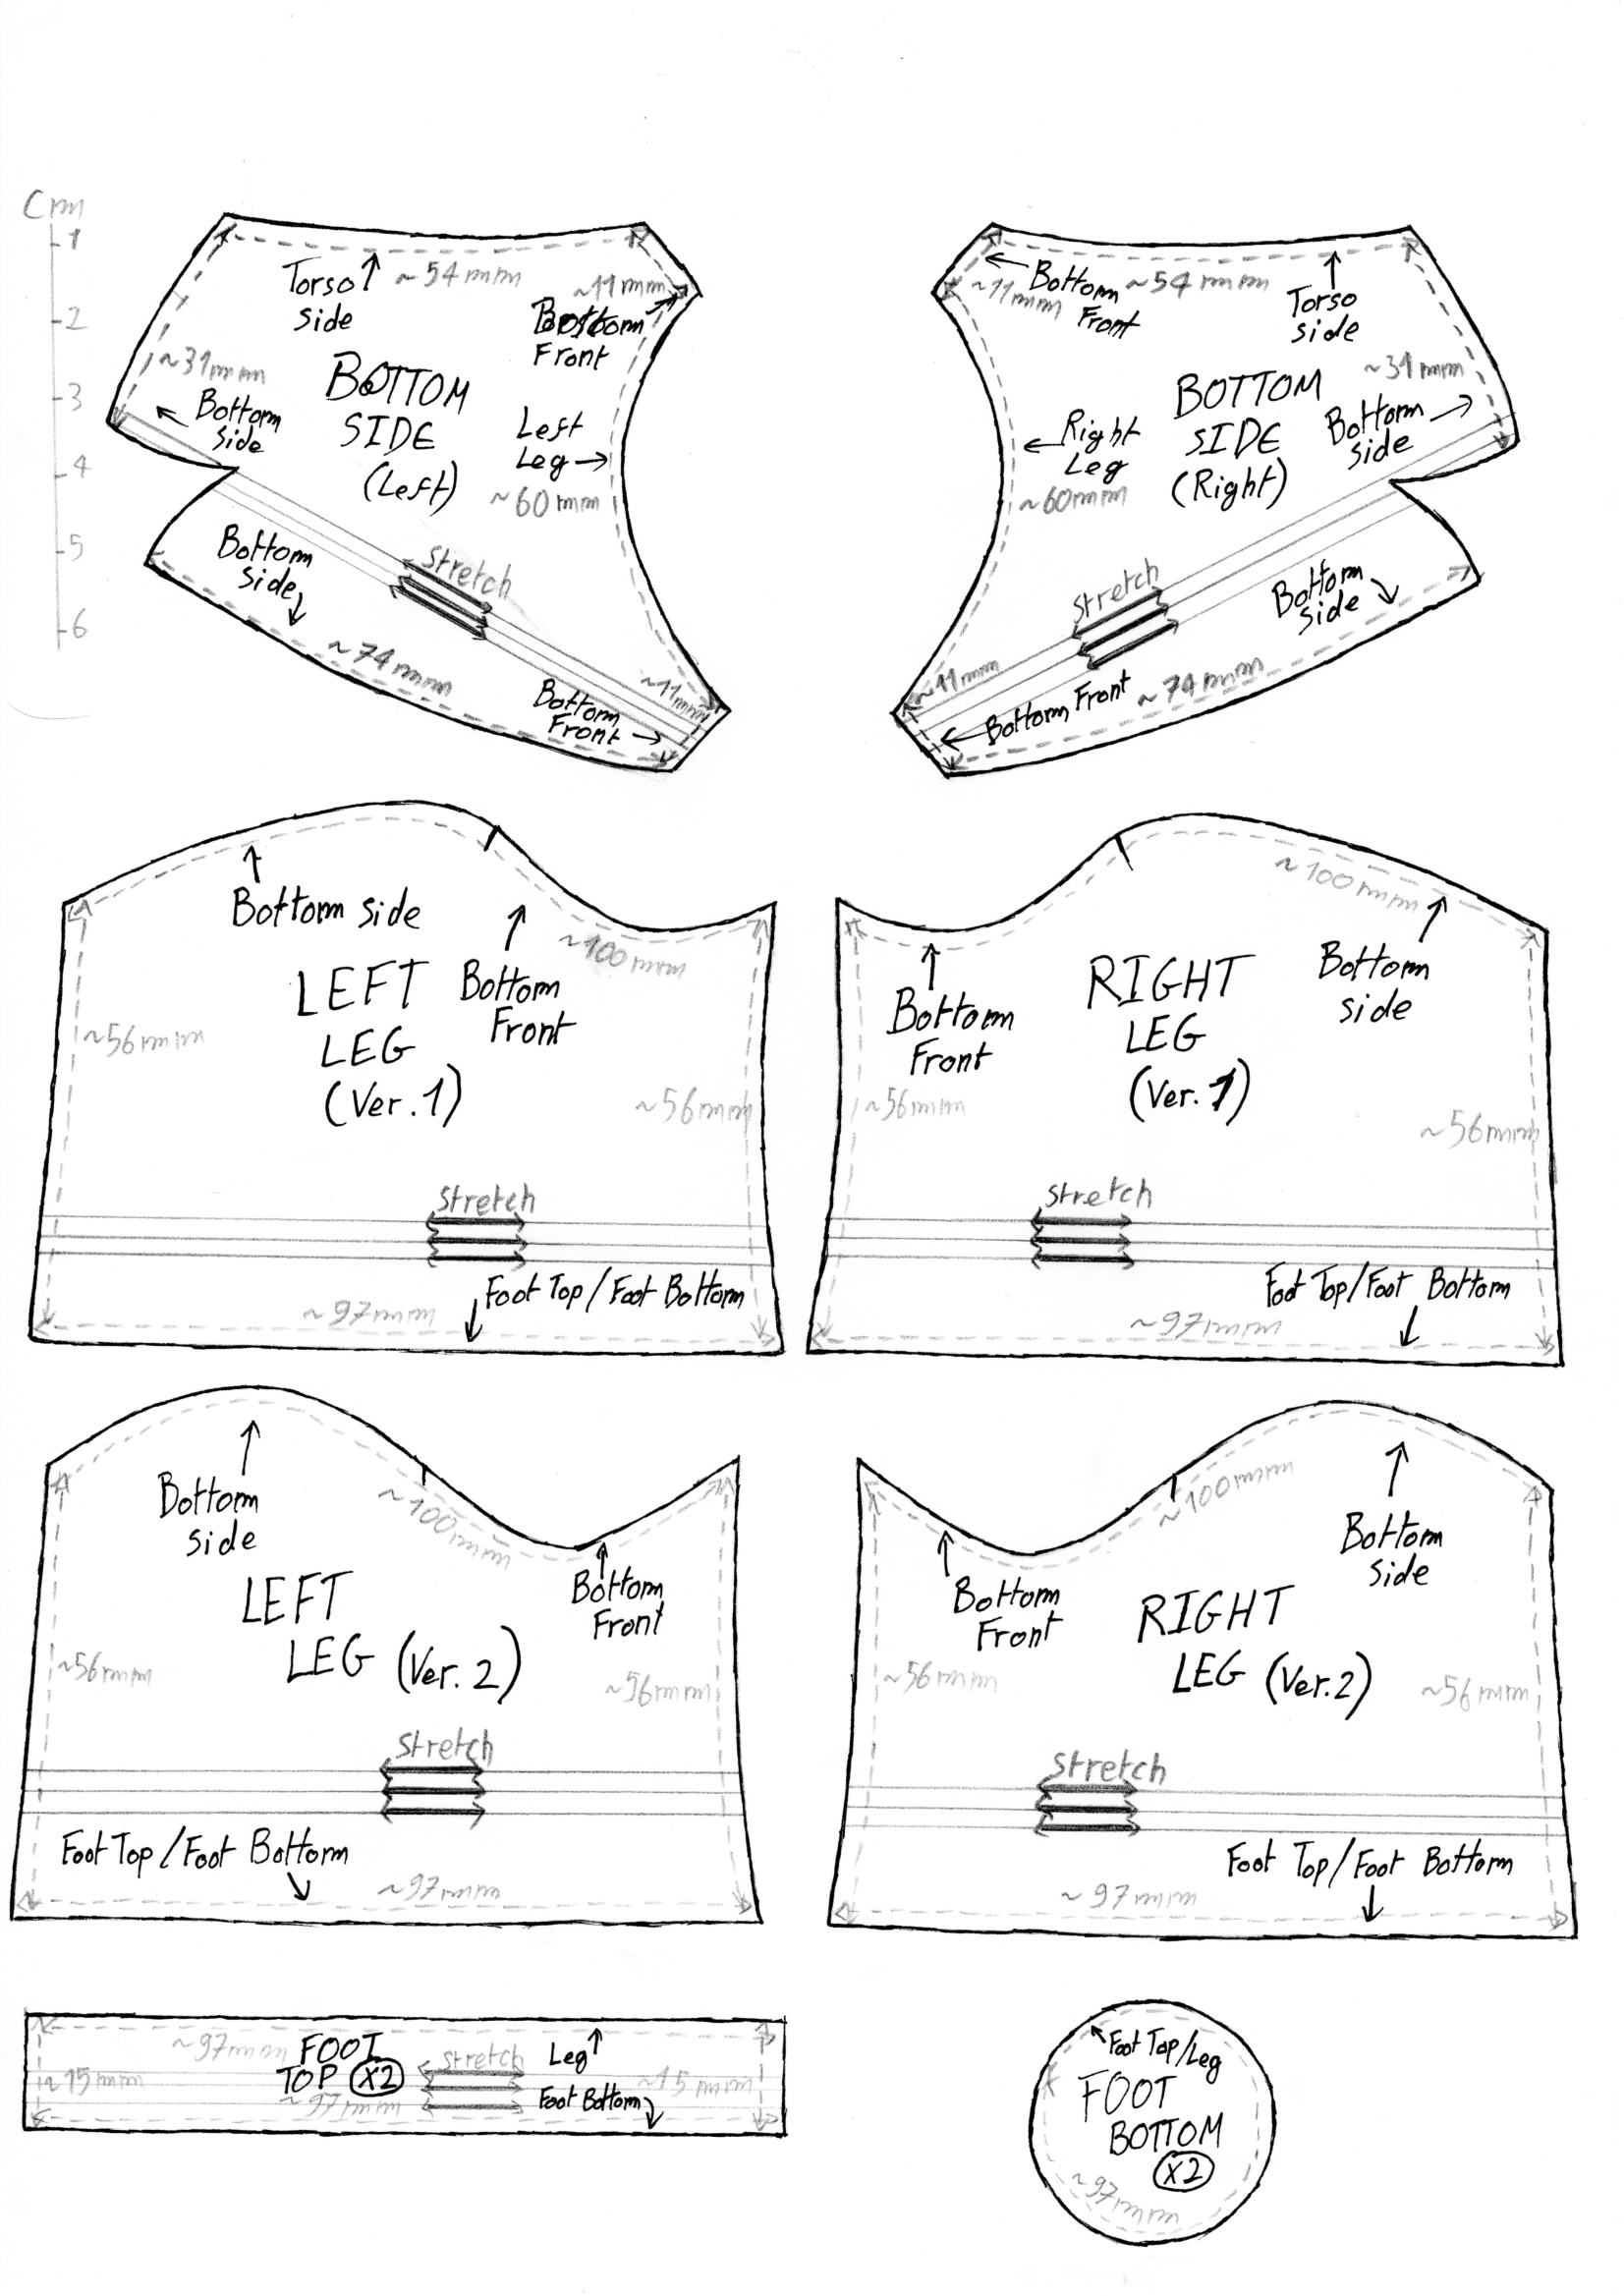 Cm
1
2
3
4
5
6
Torso
side
~54mm
~11mm
Bottom
Front
~31mm
Bottom
side
BOTTOM
SIDE
(Left)
Left
Leg
~60mm
Bottom
side
Stretch
~74mm
~11mm
Bottom
Front
~11mm
Bottom
Front
~54mm
Torso
side
~31mm
BOTTOM
SIDE
(Right)
Bottom
side
Right
Leg
~60mm
Stretch
Bottom
side
~11mm
Bottom Front
~74mm
Bottom side
~100mm
LEFT
LEG
(Ver.1)
Bottom
Front
~56mm
~56mm
Stretch
Foot Top/Foot Bottom
~97mm
~100mm
Bottom
Front
RIGHT
LEG
(Ver.1)
Bottom
side
~56mm
~56mm
Stretch
Foot Top/Foot Bottom
~97mm
Bottom
side
~100mm
Bottom
Front
LEFT
LEG (Ver.2)
~56mm
~56mm
Stretch
Foot Top/Foot Bottom
~97mm
~100mm
Bottom
Front
Bottom
side
RIGHT
LEG (Ver.2)
~56mm
~56mm
Stretch
Foot Top/Foot Bottom
~97mm
~97mm
FOOT
TOP x2
Stretch
Leg
~15mm
~15mm
~97mm
Foot Bottom
Foot Top/Leg
FOOT
BOTTOM
x2
~97mm